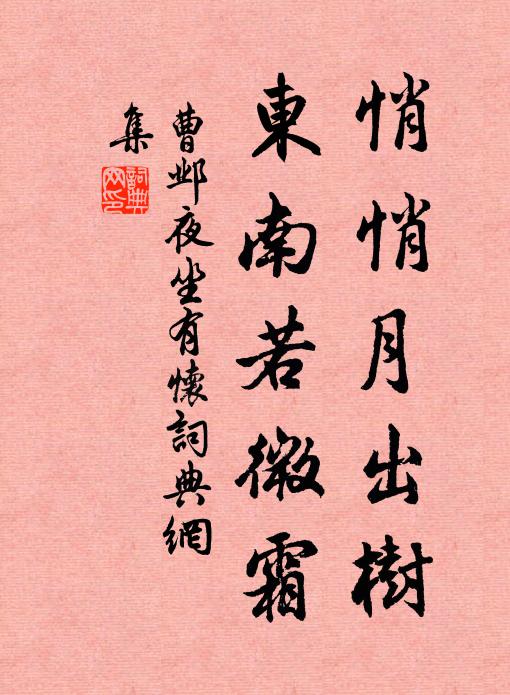 悄悄月出樹
東南若微霜
曹邺夜坐有懷詞典網
集
詞典
网印